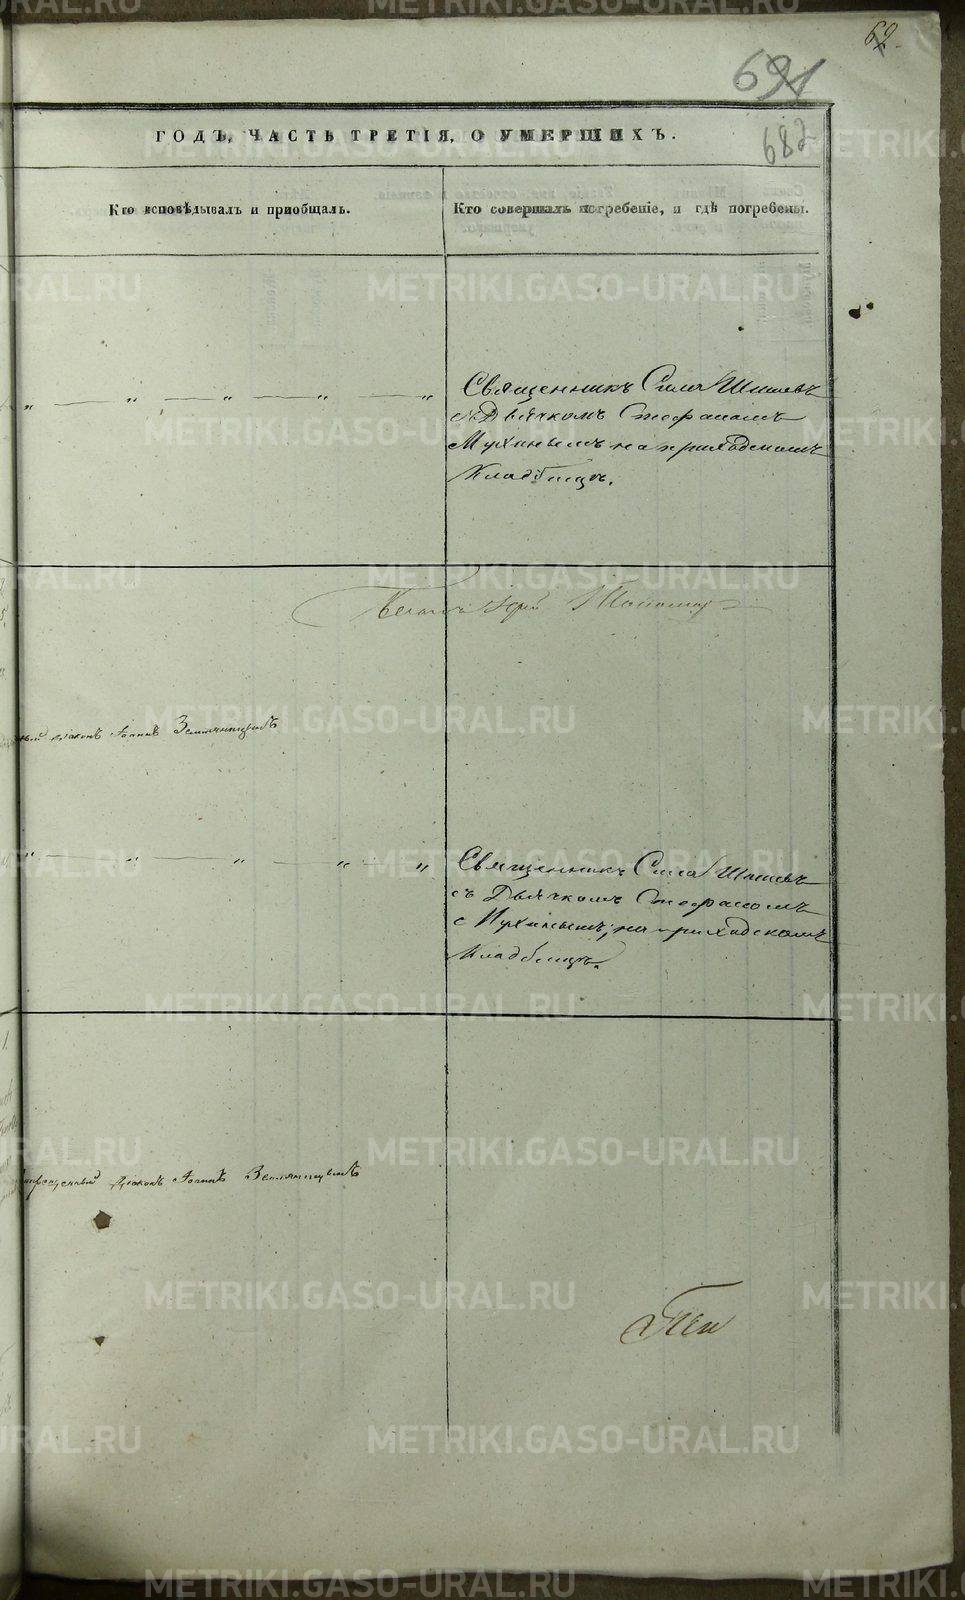 62.
691
682
ГОДЪ, ЧАСТЬ ТРЕТІЯ, О УМЕРШИХЪ.
Кто исповѣдывалъ и пріобщалъ.
Кто совершалъ погребеніе, и гдѣ погребены.
„ — „ — „ — „ — „
Священникъ Сила Шишевъ
съ Дьячкомъ Стефаномъ
Мухинымъ на приходскомъ
Кладбищѣ.
Діаконъ Іоаннъ Земляницынъ
„ — „ — „ — „ — „
Священникъ Сила Шишевъ
съ Дьячкомъ Стефаномъ
Мухинымъ, на приходскомъ
Кладбищѣ.
Діаконъ Іоаннъ Земляницынъ
METRIKI.GASO-URAL.RU